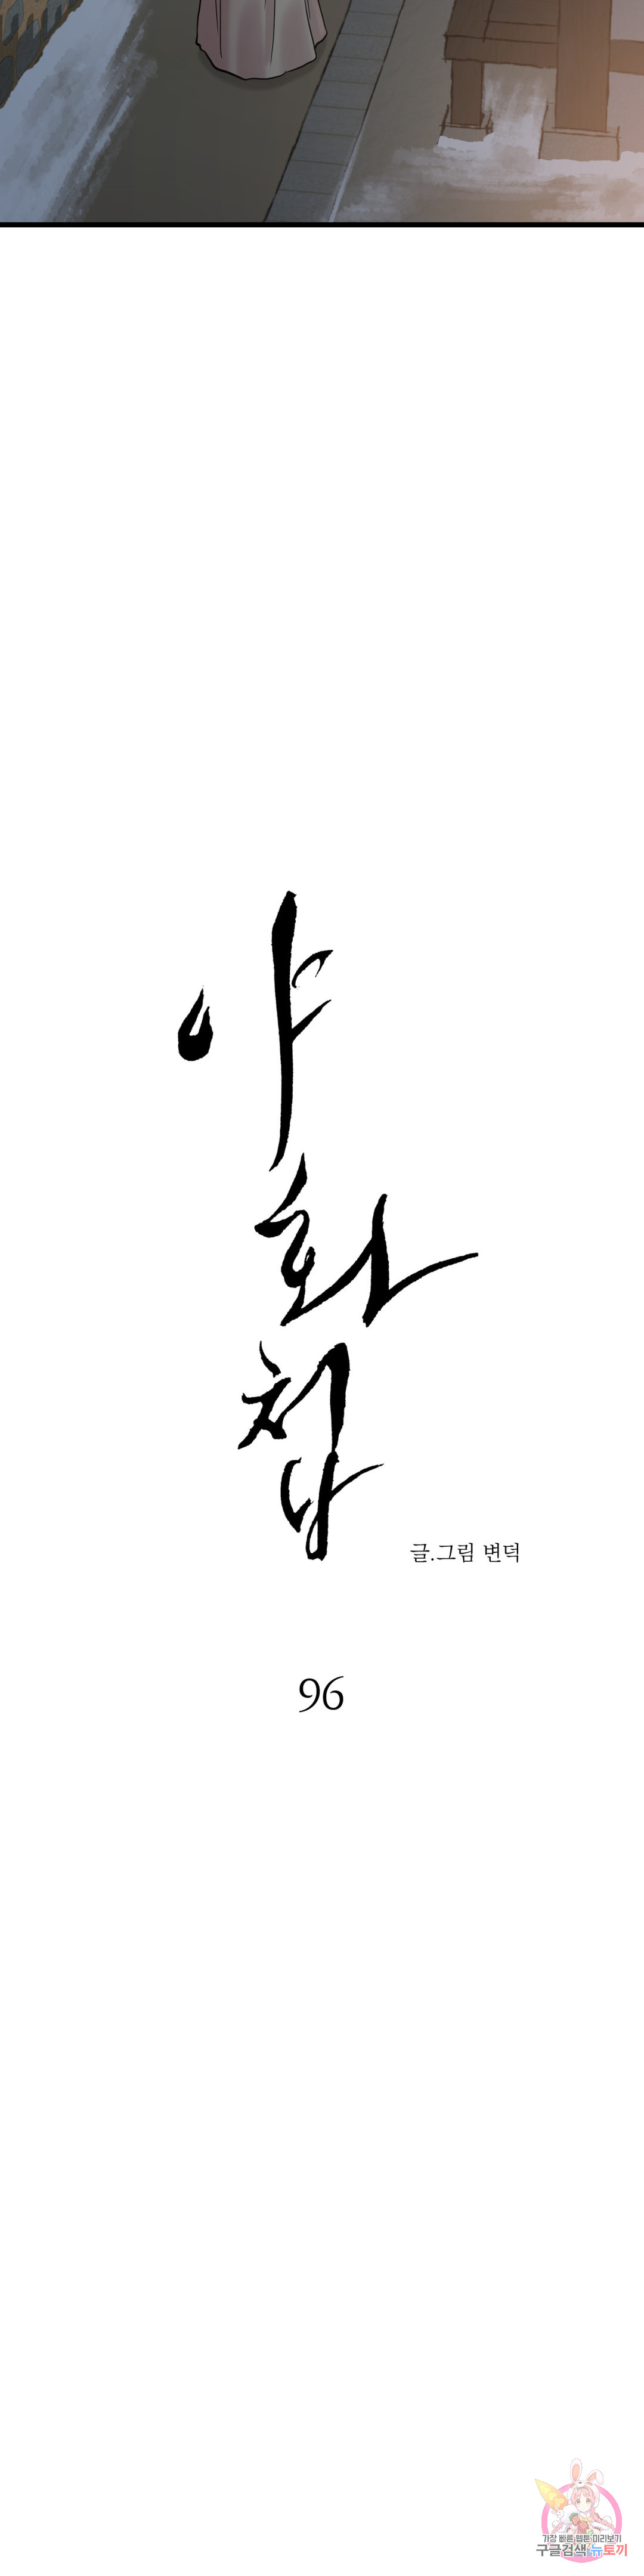 야
화
첩
글.그림 변덕
96
가장 빠른 웹툰 미리보기
구글검색 뉴토끼